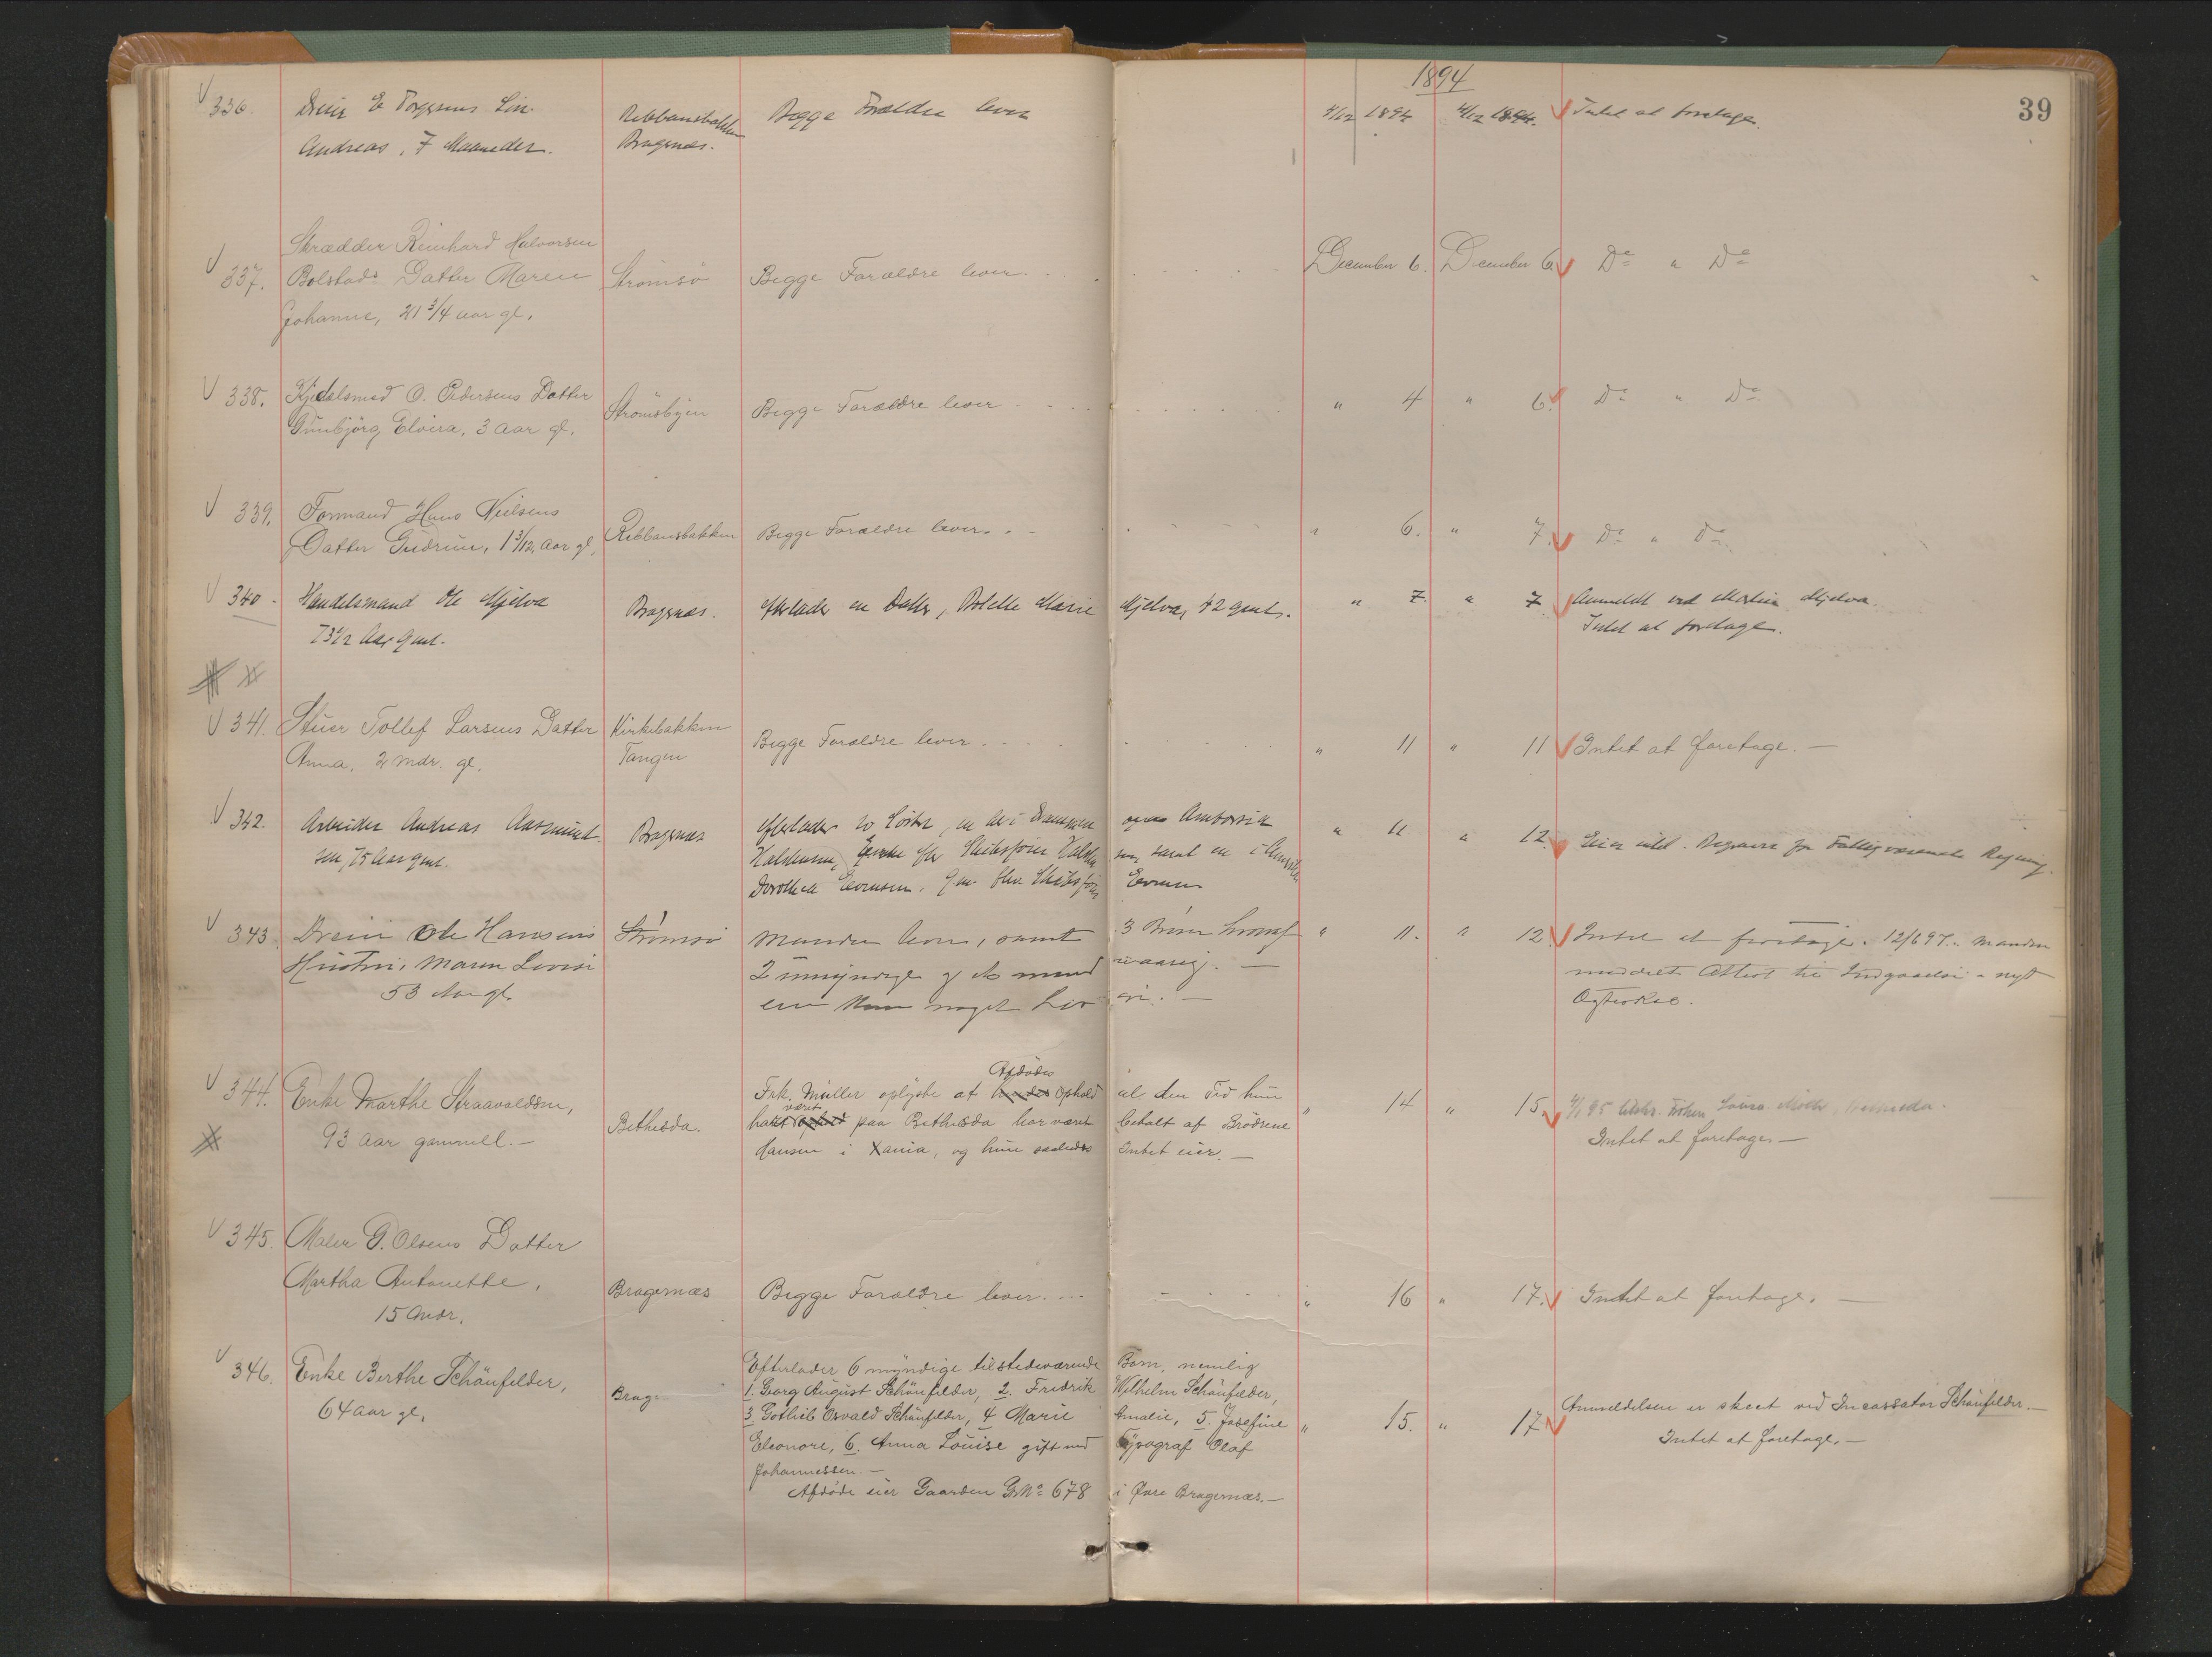 1894
39
336. Dreier E Torgersens Søn
Andreas, 7 Maaneder.
Ribbansbakken
Bragernæs.
Begge Forældre lever
4/12 1894 4/12 1894. Intet at foretage.
Skrædder Reinhard Halvorsen
337. Bolstads Datter Maren
Johanne, 21 3/4 aar gl.
Strømsø
Begge Forældre lever.
December 6. December 6. Do " Do
338. Kjedelsmed O. Pedersens Datter
Gunbjørg Elvira, 3 aar gl.
Strømsbyen
Begge Forældre lever
" 4 " 6. Do " Do
339. Formand Hans Nielsens
Datter Gudrun, 1 3/12 aar gl.
Ribbansbakken
Begge Forældre lever.
" 6. " 7. Do " Do
340. Handelsmand Ole Mjelva
73 1/2 Aar gml.
Bragernæs.
Efterlader en Datter, Bolette Marie Mjelva, 42 gml.
" 7. " 7. Anmeldt ved Mjelva
Intet at foretage.
341. Stuer Tollef Larsens Datter
Anna, 2 mdr. gl.
Kirkebakken
Tangen
Begge Forældre lever.
" 11 " 11 Intet at foretage. —
342. Arbeider Andreas Aasmund-
sen, 75 Aar gml.
Bragernæs
Efterlader to Søstre, en her i Drammen
Enke efter Skibsfører samt en i
Dorothea Evensen, Evensen
" 11 " 12. Eier intet. Begraves for Fattigvæsenets Regning.
343. Dreier Ole Hansens
Hustru, Maren Lovise
53 Aar gl.
Strømsø
Manden lever, samt 3 Børn hvoraf
2 umyndige og et mynd
" 11. " 12. Intet at foretage. 12/6 97. Manden
meddelt Attest til Indgaaelse a nyt
Ægteskab.
344. Enke Marthe Straavaldsen,
93 aar gammell. —
Bethesda.
Afdødes
Frk. Müller oplyste at hendes Ophold al den Tid hun
været
havt paa Bethesda har været betalt af Brødrene
Hansen i Xania, og hun saaledes Intet eier. —
" 14 " 15.
Intet at foretage. —
345. Maler G. Olsens Datter
Martha Antonette,
15 mdr.
Bragernæs
Begge Forældre lever.
" 16 " 17. Intet at foretage. —
346. Enke Berthe Schönfelder,
64 aar gl.
Brag.
Efterlader 6 myndige tilstedeværende Børn, nemlig
1. Georg August Schönfelder, 2. Fredrik Wilhelm Schönfelder,
3. Gotlieb Osvald Schönfelder, 4 Marie Amalie, 5. Josefine
Eleonore, 6. Anna Louise gift med Typograf Olaf
Johannessen. —
Afdøde eier Gaarden G. No 678 i Øvre Bragernæs. —
" 15. " 17 Anmeldelsen er skeet ved Incassator Schönfelder. —
Intet at foretage. —